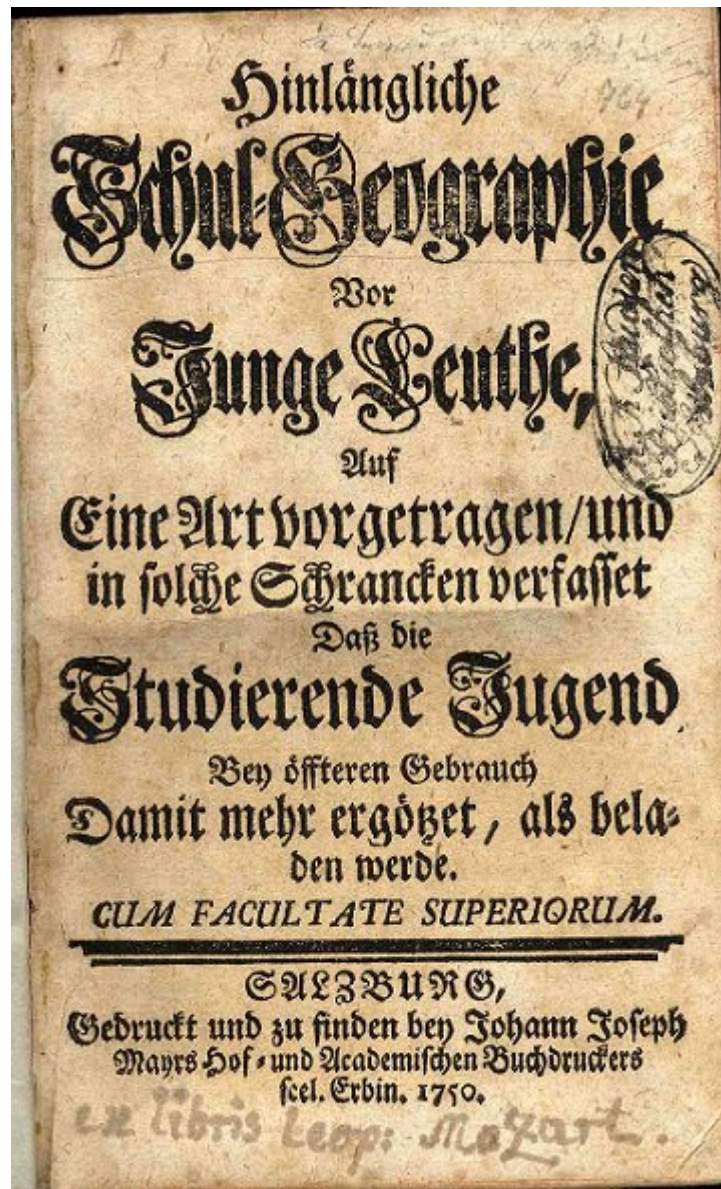 764
Hinlängliche
Schul-Geographie
Vor
Junge Leuthe,
Auf
Eine Art vorgetragen/und
in solche Schrancken verfasset
Daß die
Studierende Jugend
Bey öffteren Gebrauch
Damit mehr ergötzet, als bela-
den werde.
CUM FACULTATE SUPERIORUM.
SALZBURG,
Gedruckt und zu finden bey Johann Joseph
Mayrs Hof- und Academischen Buchdruckers
seel. Erbin. 1750.
ex libris Leop: Mozart.
K. K. Studien
Bibliothek
Salzburg